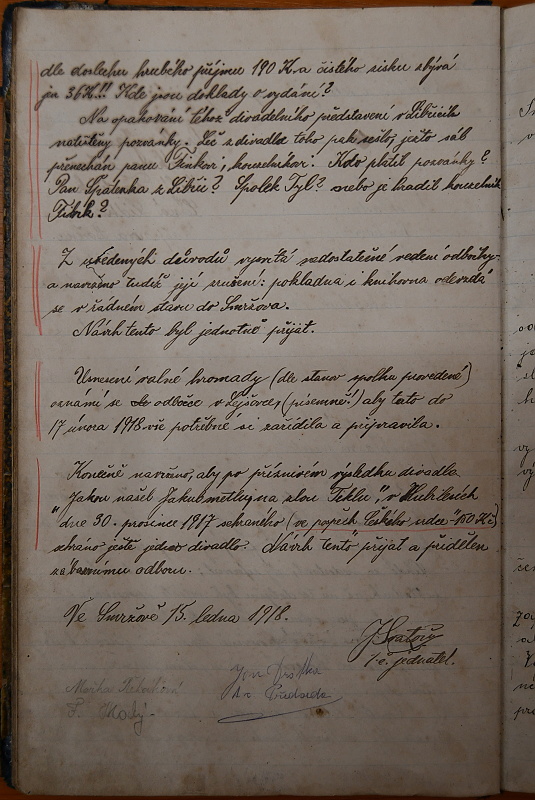 dle doslechu hrubého příjmu 190 K a čistého zisku zbývá
jn 36K!!! Kde jsou doklady o vydání?
Na opakování téhož divadelního představení v Libřicích
natištěny pozvánky. Leč z divadla toho pak sešlo, ježto sál
přenechán panu kouzelníkovi. Kdo platil pozvánky?
Pan Špatenka z Libřic? Spolek Tyl? nebo je hradil kouzelník
Z uvedených důvodů vysvítá nedostatečné vedení odbočky
a navrženo tudíž její zrušení: pokladna i knihovna odevzdá
se v řádném stavu do Smržova.
Návrh tento byl jednotně přijat.
Usnesení valné hromady (dle stanov spolku provedené)
oznámí se odbočce v Lejšovce, (písemně!) aby tato do
17 února 1918 vše potřebné si zařídila a připravila.
Konečně navrženo, aby po příznivém výsledku divadla
"Jakou našel Jakub metlu na zlou Teklu", v
dne 30. prosince 1917 sehraného (ve prospěch Českého srdce - 150 K)
sehráno ještě jedno divadlo. Návrh tento přijat a přidělen
zábavnímu odboru.
Ve Smržově 15. ledna 1918.
t. č. jednatel.
Jan